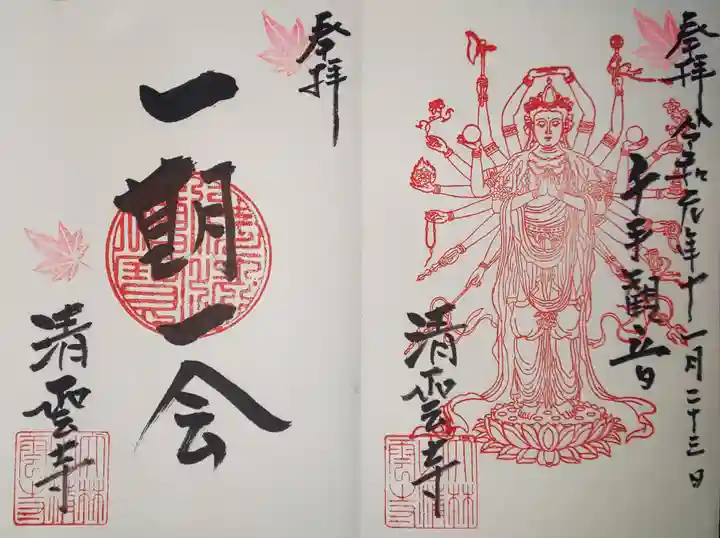 奉拝
令和元年十一月二十三日
千手観音
清雲寺
奉拝
一期一会
清雲寺